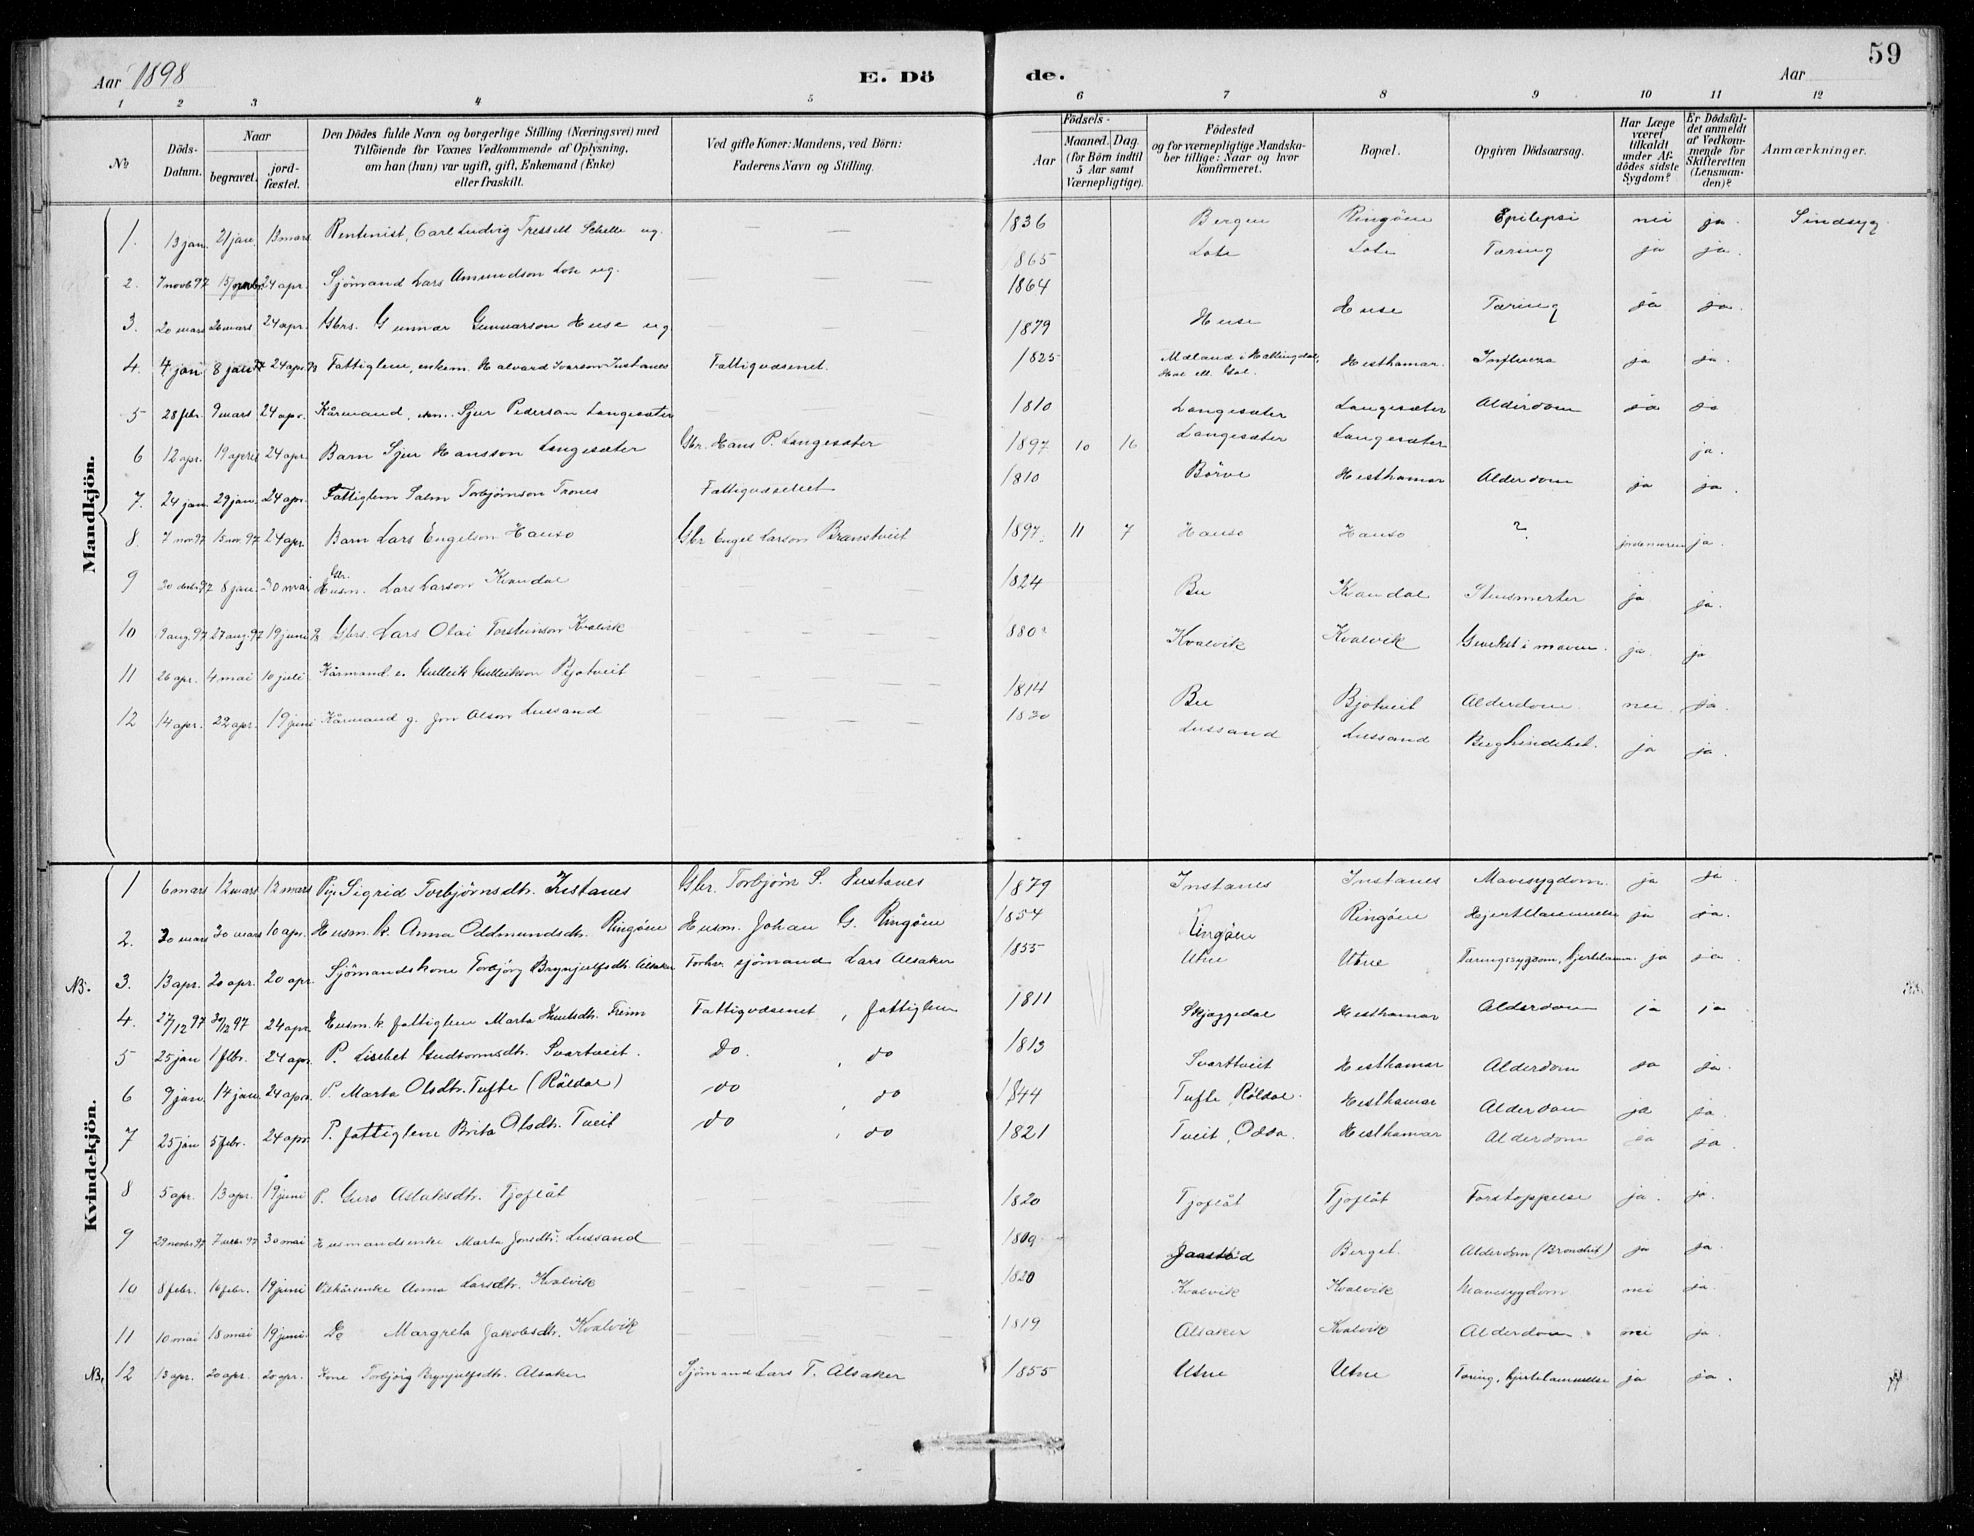 59
Aar 1898 E. Dö de. Aar
1 2 3 4 5 6 7 8 9 10 11 12
No
Döds-Datum.
Naar
begravet.
jord-fæstet.
Den Dödes fulde Navn og borgerlige Stilling (Næringsvei) med
Tilföiende for Voxnes Vedkommende af Oplysning,
om han (hun) var ugift, gift, Enkemand (Enke)
eller fraskilt.
Ved gifte Koner: Mandens, ved Börn:
Faderens Navn og Stilling.
Födsels-
Aar
Maaned. Dag.
(for Börn indtil
5 Aar samt
Værnepligtige).
Födested
og for værnepligtige Mandska-
ber tillige: Naar og hvor
konfirmeret.
Bopæl.
Opgiven Dödsaarsag.
Har Læge
været
tilkaldt
under Af-
dödes sidste
Sygdom?
Er Dödsfal-
det anmeldt
af Vedkom-
mende for
Skifteretten
(Lensman-
den)?
Anmærkninger.
Mandkjön.
1. 13 jan. 21 jan. 13 mars Rentenist, Carl Ludvig Schelle ug. 1836 Bergen Ringöen Epilepsi nei ja. Sindsyg
2. 7 novb 97 24 apr. Sjömand Lars Amundson Lote ug. 1865 1864 Lote Lote Tæring ja ja.
3. 20 mars 26 mars 24 apr. Gbrs. Gunnar Gunnarson Huse ug 1879 Huse Huse Tæring ja ja.
4. 4 jan 8 jan 24 apr. Fattiglem, enkem. Halvard Ivarson Instanes Fattigvæsenet. 1825 Mæland i Hallingdal, Hol ell. Gol. Hesthamar. Influenza ja ja.
5 28 febr. 9 mars 24 apr. Kårmand, Sjur Pederson Langesæter 1810 Langesæter Langesæter Alderdom ja ja
6 12 apr. 19 april 24 apr. Barn Sjur Hansson Langesæter Gbr. Hans P. Langesæter 1897 10 16 Langesæter Langesæter ja.
7. 24 jan 29 jan. 24 apr. Fattiglem Salm Torbjörnson Trones Fattigvæsenet 1810 Börve Hesthamar Alderdom ja ja.
8. 7 nov 97 15 nov. 97 24 apr Barn Lars Engelson Hauso Gbr Engel Larson Branstveit 1897. 11 7 Hauso Hauso ? ja.
9 30 decbr 97 8 jan. 30 mai Gbr. Husm. Lars Larson Kvandal 1824 Bu Kvandal Stensmerter ja ja.
10 9 aug. 97 27 aug. 97 19 juni Gbrs. Lars Olai Torsteinson Kvalvik 880 Kvalvik Kvalvik Gevekst i maven. ja. ja
11 26 apr. 4 mai 10 juli Kårmand e. Gullik Gullikson Bjotveit 1814 Bu Bjotveit Alderdom. nei ja.
12 14 apr. 22 apr. 19 juni Kårmand g. Jon Olson Lussand 1820 Lussand Lussand ja ja.
Kvindekjön.
1 6 mars 12 mars 13 mars Pige Sigrid Torbjörnsdtr. Instanes Gbr. Torbjörn S. Instanes 1879 Instanes Instanes Mavesygdom. ja ja.
2. 20 mars 30 mars 10 apr. Husm. k. Anna Oddmundsdtr. Ringöen Husm. Johan G. Ringöen 1854 Ringöen Ringöen Hjertelammelse ja ja.
NB. 3. 13 apr. 20 apr. 20 apr. Sjömandskone Torbjörg Brynjulfsdtr. Alsaker Forhv. sjömand Lars Alsaker 1855 Utne Utne Tæringssygdom, hjertelam. ja ja.
4. 27/12 97 30/12 97 24 apr Husm. k fattiglem Marta Knutsdtr. Freim Fattigvæsenet, fattiglem 1811 Skjæggedal Hesthamar Alderdom ja ja
5 25 jan 1 febr. 24 apr. P. Lisebet Guttormsdtr. Svartveit. Do. , do 1813 Svarttveit Hesthamar Alderdom ja ja.
6 9 jan. 14 jan. 24 apr. P. Marta Olsdtr. Tufte (Röldal) do , do 1844 Tufte, Röldal. Hesthamar Alderdom ja ja.
7 25 jan 5 febr. 24 apr P. fattiglem Brita Olsdtr. Tveit do , do 1821 Tveit, Odda. Hesthamar Alderdom ja ja.
8 5 apr. 13 apr. 19 juni P. Guro Aslaksdtr. Tjoflåt 1820 Tjoflåt Tjoflåt Forstoppelse ja. ja.
9 29 novbr 97 7 decbr 97 30 mai Husmandsenke Marta Jonsdtr. Lussand 1809 Jaastad Berget. Alderdom (Bronchit) ja ja.
10 8 febr. 16 febr. 19 juni Vilkårsenke Anna Larsdtr. Kvalvik 1820 Kvalvik Kvalvik Mavesygdom nei ja.
11 10 mai 18 mai 19 juni. Do Margreta Jakobsdtr. Kvalvik 1819 Alsaker Kvalvik Alderdom. nei ja.
NB. 12 13 apr. 20 apr. 20 apr. Kone Torbjörg Brynjulfsdtr. Alsaker Sjömand Lars T. Alsaker 1855 Utne Utne Tæring, hjertelammelse ja ja.